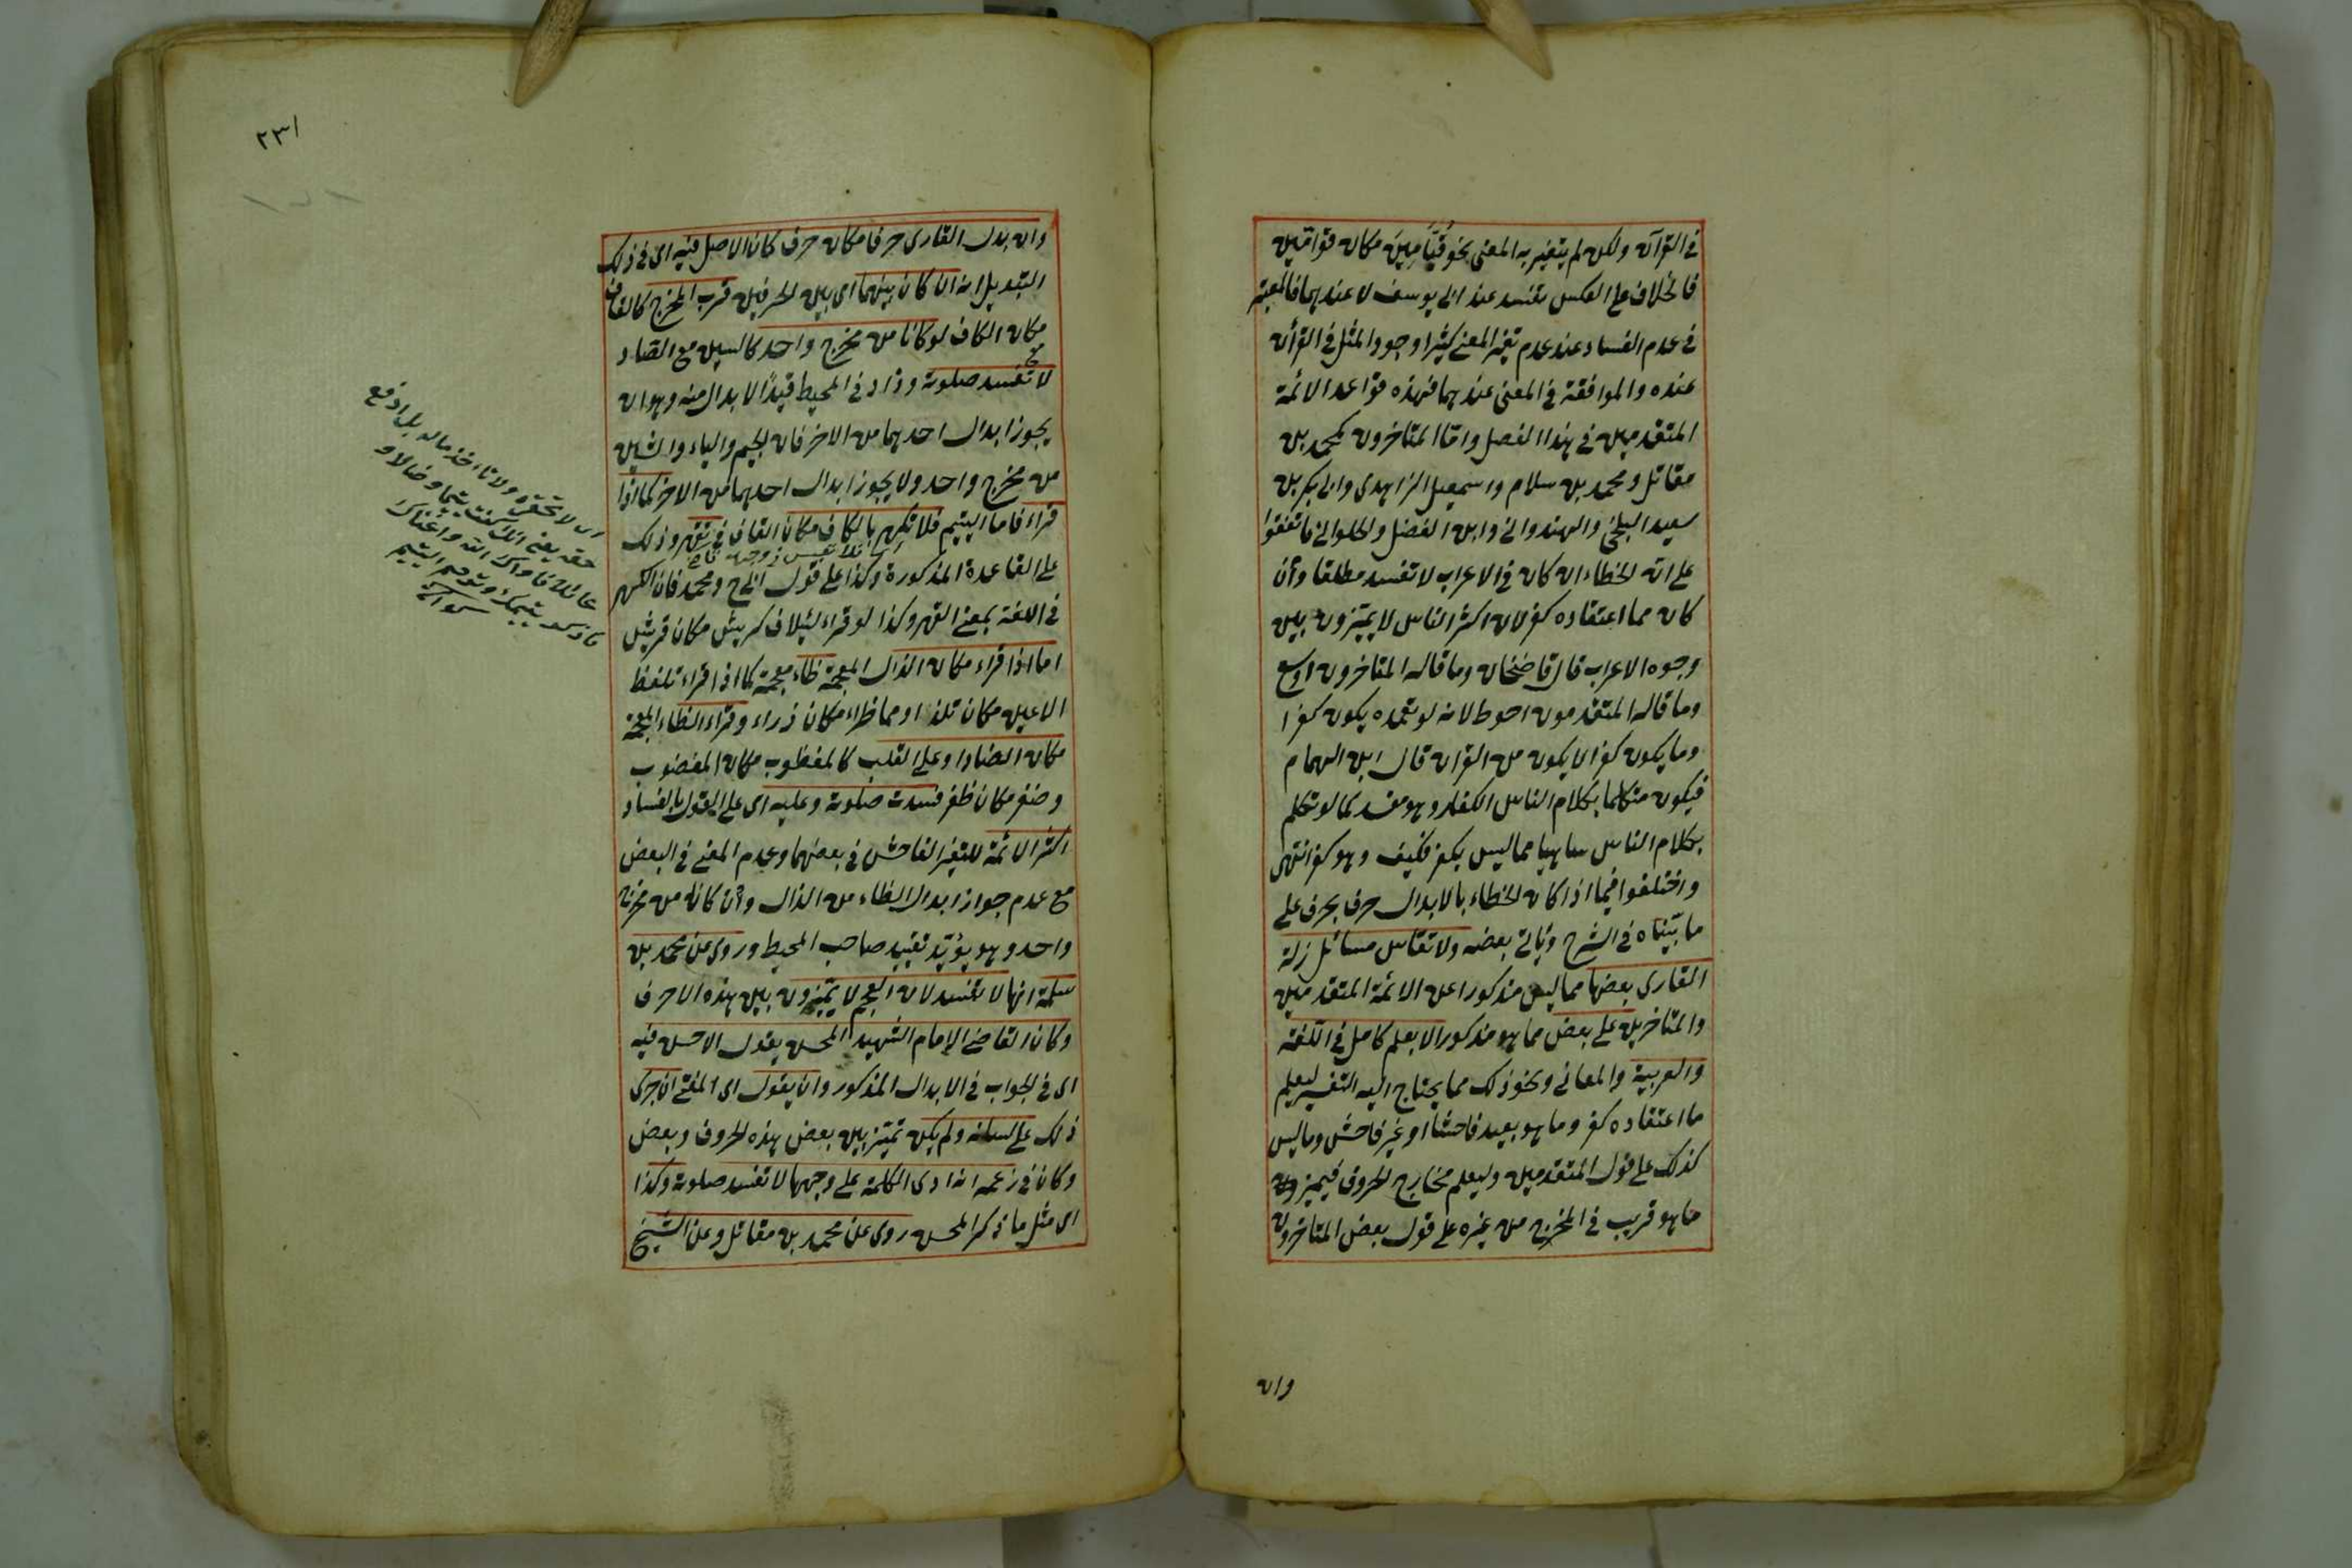 في القرآن ولكن لم يتغير به المعنى نحو قيَّامين مكان قوامين
فالخلاف على العكس تفسد عند ابي يوسف لا عندهما فالمعتبر
في عدم الفساد عند عدم تغير المعنى كثيرا وجود المثل في القرآن
عنده والموافقة في المعنى عندهما فهذه قواعد الائمة
المتقدمين في هذا الفصل واما المتاخرون كمحمد بن
مقاتل ومحمد بن سلام واسمعيل الزاهدى وابي بكر بن
سعيد البلخي والهندوانى وابن الفضل والحلوانى فاتفقوا
على ان الخطاء ان كان في الاعراب لا تفسد مطلقا وان
كان مما اعتقاده كفر لان اكثر الناس لا يميزون بين
وجوه الاعراب قال قاضيخان وما قاله المتاخرون اوسع
وما قاله المتقدمون احوط لانه لو تعمده يكون كفرا
وما يكون كفرا لا يكون من القران قال ابن الهمام
فيكون متكلما بكلام الناس الكفار وهو مفسد كما لو تكلم
بكلام الناس ساهيا مما ليس بكفر فكيف وهو كفر انتهى
واختلفوا فيما اذا كان الخطاء بالابدال حرف بحرف على
ما بيّنّاه في الشرح وياتي بعضه ولا تقاس مسائل زلة
القارى بعضها مما ليس مذكورا عن الائمة المتقدمين
والمتاخرين على بعض مما هو مذكور الا بعلم كامل في اللغة
والعربية والمعاني ونحو ذلك مما يحتاج اليه التفسير ليعلم
ما اعتقاده كفر وما هو بعيد فاحشا او غير فاحش وما ليس
كذلك على قول المتقدمين وليعلم مخارج الحروف فيميز
ما هو قريب في المخرج من غيره على قول بعض المتاخرون
وان
٢٣١
وان بدل القارى حرفا مكان حرف كان الاصل فيه اى في ذلك
التبديل انه ان كان بينهما اى بين الحرفين قرب المخرج كالقاف
مكان الكاف او كانا من مخرج واحد كالسين مع الصاد
لا تفسد صلوته وزاد في المحيط قيدًا لا بدال منه وهو ان
يجوز ابدال احدهما من الاخر فان الجيم والياء والشين
من مخرج واحد ولا يجوز ابدال احدهما من الاخر كما اذا
قراء فاما اليتيم فلا تكهر بالكاف مكان القاف في تقهر وذلك
على القاعدة المذكورة وكذا على قول ابى ح ومحمد فان الكهر
في اللغة بمعنى القهر وكذا لو قراء لئيلاف كريش مكان قريش
اما اذا قراء مكان الذال المعجمة ظاء معجمة كما اذا قراء تلفظ
الاعين مكان تلذ او مما ظراء مكان ذراء وقراء الظاء المعجمة
مكان الضاد او على القلب كالمغظوب مكان المغضوب
وضفر مكان ظفر فسدت صلوته وعليه اى على القول بالفساد
اكثر الائمة للتغير الفاحش في بعضهما وعدم المعنى في البعض
مع عدم جواز ابدال الظاء من الذال وان كانا من مخرج
واحد وهو يؤيّد تقييد صاحب المحيط وروى عن محمد بن
سلمة انها لا تفسد لان العجم لا يميّزون بين هذه الاحرف
وكان القاضى الإمام الشهيد المحسن يقول الاحسن فيه
اى في الجواب في الابدال المذكور وان يقول اى المفتى ان جرى
ذلك على لسانه ولم يكن تميّز بين بعض هذه الحروف وبعض
وكان في زعمه انه ادى الكلمة على وجهها لا تفسد صلوته وكذا
اى مثل ما ذكر المحسن روى عن محمد بن مقاتل وعن الشيخ
اى لا تحقره ولا تأخذ ماله بل ادفع
حقه يعنى انك كنت يتيما وضالا و
عائلا فاواك الله واغناك